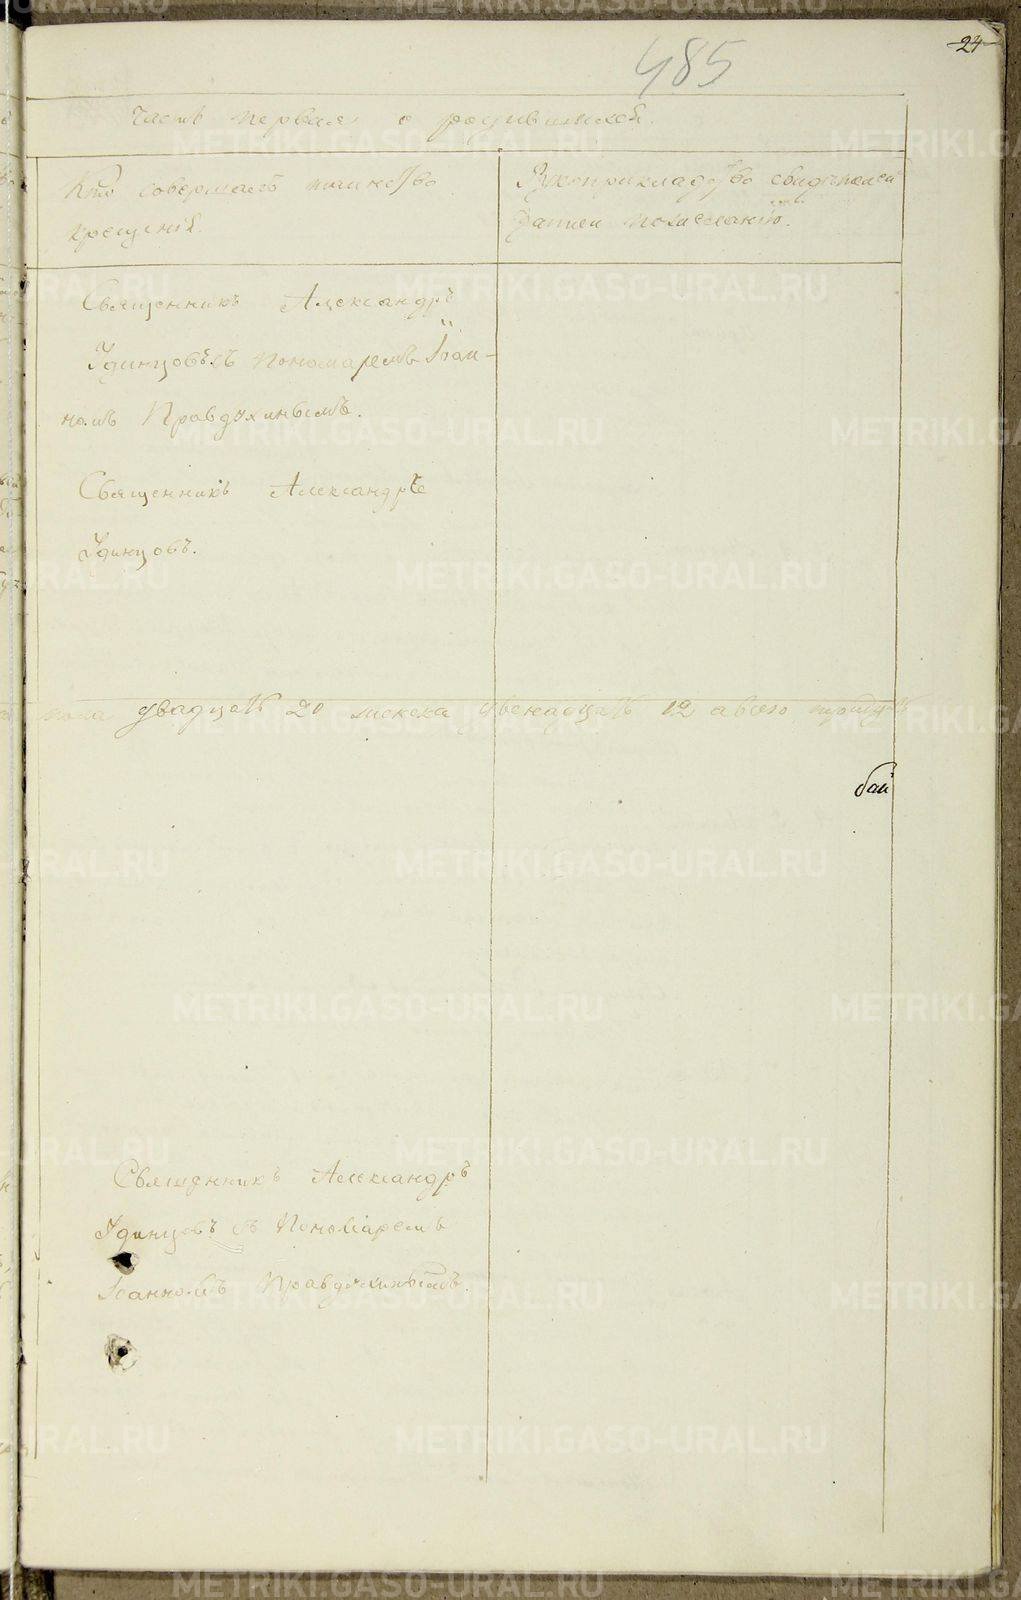 24
485
Часть первая о родившихся.
Кто совершалъ таинство
крещенія.
Рукоприкладство свидѣтелей
записи по желанію.
Священникъ Александръ
Удинцовъ съ Пономаремъ Іоан-
номъ Правдухинымъ.
Священникъ Александръ
Удинцовъ.
пола двадцать 20 женска двенадцать 12 а всего тритцать
Священникъ Александръ
Удинцовъ съ Пономаремъ
Іоанномъ Правдухинымъ.
METRIKI.GASO-URAL.RU